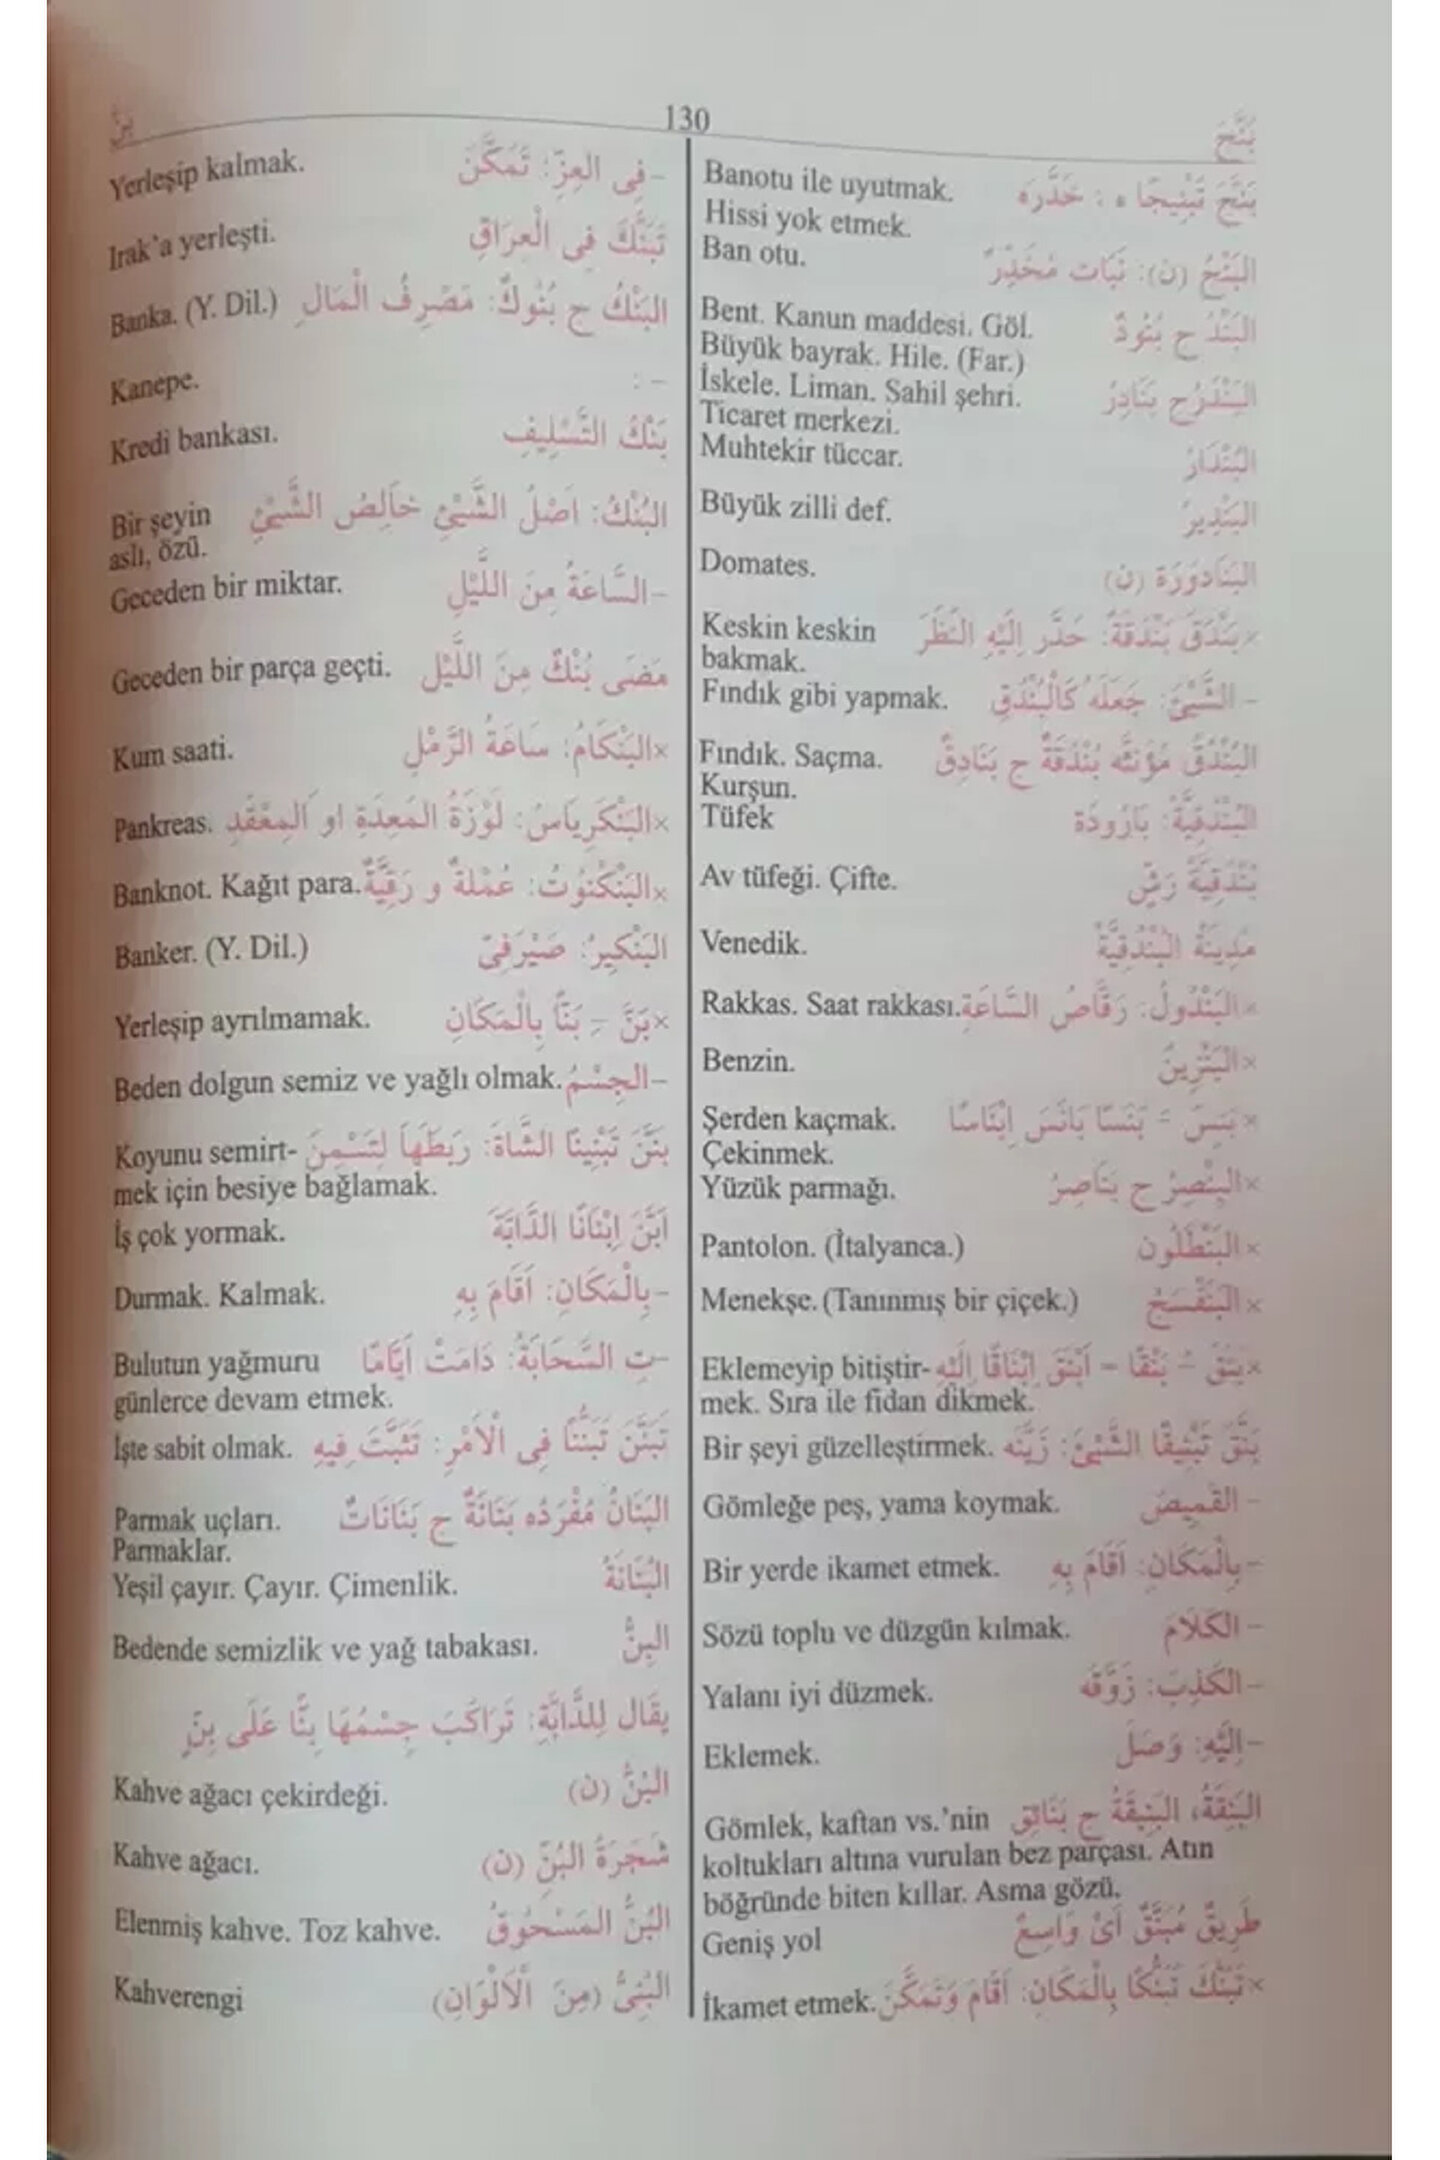 بَنَّجَ 130 بِنٌّ
بَنَّجَ تَبْنِيجًا ه : خَدَّرَه Banotu ile uyutmak.
Hissi yok etmek.
البَنْجُ (ن): نَبَات مُخَدِّرٌ Ban otu.
البَنْدُ ج بُنُودٌ Bent. Kanun maddesi. Göl.
Büyük bayrak. Hile. (Far.)
البَنْدَرُ ج بَنَادِرُ İskele. Liman. Sahil şehri.
Ticaret merkezi.
البُنْدَارُ Muhtekir tüccar.
البَنْدِيرُ Büyük zilli def.
البَنَادورَة (ن) Domates.
×بَنْدَقَ بَنْدَقَةً: حَدَّر اِلَيْهِ النَّظَرَ Keskin keskin
bakmak.
- الشَّيْئَ: جَعَلَهُ كَالْبُنْدُقِ Fındık gibi yapmak.
البُنْدُقُ مُؤَنثُه بُنْدُقَةٌ ج بَنَادِقُ Fındık. Saçma.
Kurşun.
البُنْدُقِيَّةُ: بَارُودَة Tüfek
بُنْدُقِيَّةُ رَشٍّ Av tüfeği. Çifte.
مَدِينَةُ الْبُنْدُقِيَّةِ Venedik.
×البَنْدُولُ: رَقَّاصُ السَّاعَةِ Rakkas. Saat rakkası.
×البَنْزِينُ Benzin.
× بَنِسَ = بَنَسًا بَانَسَ اِبْنَاسًا Şerden kaçmak.
Çekinmek.
×البِنْصِرُ ج بَنَاصِرُ Yüzük parmağı.
×البَنْطَلُون Pantolon. (İtalyanca.)
×البَنَفْسَجُ Menekşe. (Tanınmış bir çiçek.)
×بَنَقَ - بَنْقًا - اَبْنَقَ اِبْنَاقًا اِلَيْهِ Eklemeyip bitiştir-
mek. Sıra ile fidan dikmek.
بَنَّقَ تَبْنِيقًا الشَّيْئَ: زَيَّنَه Bir şeyi güzelleştirmek.
- القَمِيصَ Gömleğe peş, yama koymak.
-بِالْمَكَانِ: اَقَامَ بِهِ Bir yerde ikamet etmek.
- الكَلَامَ Sözü toplu ve düzgün kılmak.
-الكَذِبَ: زَوَّقَه Yalanı iyi düzmek.
-اِلَيْهِ: وَصَلَ Eklemek.
البَنِقَةُ، البَنِيقَةُ ج بَنَائِق Gömlek, kaftan vs.'nin
koltukları altına vurulan bez parçası. Atın
böğründe biten kıllar. Asma gözü.
طَرِيقٌ مُبَنَّقٌ اَىْ وَاسِعٌ Geniş yol
×تَبَنَّكَ تَبَنُّكًا بِالْمَكَانِ: اَقَامَ وَتَمَكَّنَ İkamet etmek.
-فِى العِزِّ: تَمَكَّنَ Yerleşip kalmak.
تَبَنَّكَ فِى الْعِرَاقِ Irak'a yerleşti.
البَنْكُ ج بُنُوكٌ: مَصْرِفُ الْمَالِ Banka. (Y. Dil.)
- : Kanepe.
بَنْكُ التَّسْلِيفِ Kredi bankası.
البُنْكُ: اَصْلُ الشَّيْئِ خَالِصُ الشَّيْئِ Bir şeyin
aslı, özü.
-السَّاعَةُ مِنَ اللَّيْلِ Geceden bir miktar.
مَضَى بُنْكٌ مِنَ اللَّيْلِ Geceden bir parça geçti.
×البَنْكَامُ: سَاعَةُ الرَّمْلِ Kum saati.
×البَنْكَرِيَاسُ: لَوْزَةُ المَعِدَةِ او المِعْقَدِ Pankreas.
×البَنْكْنُوتُ: عُمْلَةٌ و رَقِيَّةٌ Banknot. Kağıt para.
البَنْكِيرُ: صَيْرَفِىّ Banker. (Y. Dil.)
×بَنَّ - بَنًّا بِالْمَكَانِ Yerleşip ayrılmamak.
-الجِسْمُ Beden dolgun semiz ve yağlı olmak.
بَنَّنَ تَبْنِينًا الشَّاةَ: رَبَطَهَا لِتَسْمِنَ Koyunu semirt-
mek için besiye bağlamak.
اَبَنَّ اِبْنَانًا الدَّابَّةَ İş çok yormak.
-بِالْمَكَانِ: اَقَامَ بِهِ Durmak. Kalmak.
-تِ السَّحَابَةُ: دَامَتْ اَيَّامًا Bulutun yağmuru
günlerce devam etmek.
تَبَنَّنَ تَبَنُّنًا فِى الْاَمْرِ: تَثَبَّتَ فِيهِ İşte sabit olmak.
البَنَانُ مُفْرَدُه بَنَانَةٌ ج بَنَانَاتٌ Parmak uçları.
Parmaklar.
البُنَانَةُ Yeşil çayır. Çayır. Çimenlik.
البِنُّ Bedende semizlik ve yağ tabakası.
يقَال لِلدَّابَّةِ: تَرَاكَبَ جِسْمُهَا بِنًّا عَلَى بِنٍّ
البُنُّ (ن) Kahve ağacı çekirdeği.
شَجَرَةُ البُنِّ (ن) Kahve ağacı.
البُنُّ المَسْحُوقُ Elenmiş kahve. Toz kahve.
البُنِّىُّ (مِنَ الْاَلْوَانِ) Kahverengi